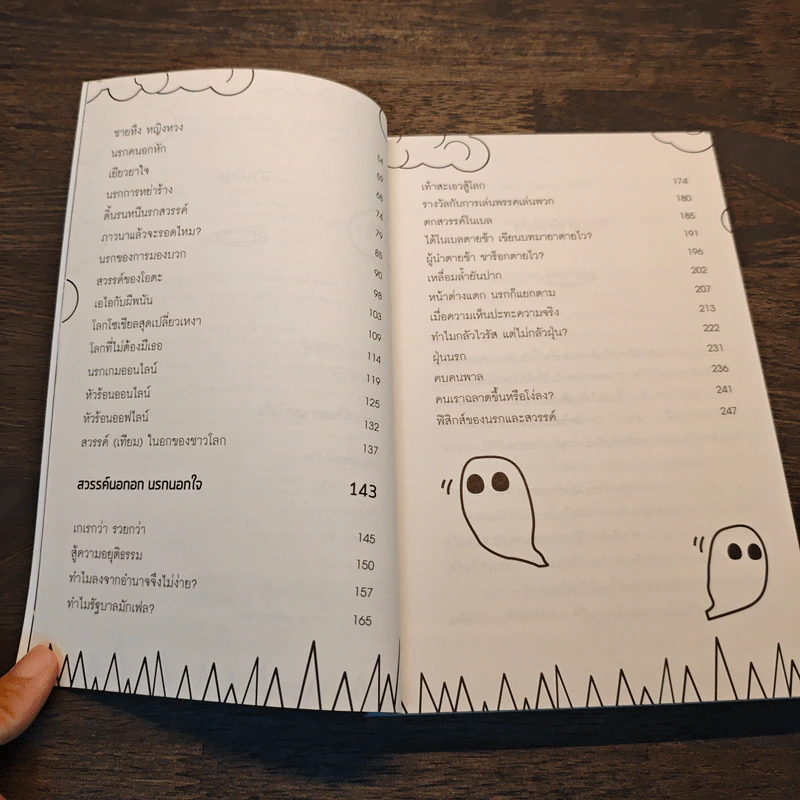 ชายหึง หญิงหวง 54
นรกคนอกหัก 59
เยียวยาใจ 68
นรกการหย่าร้าง 74
ดิ้นรนหนีนรกสวรรค์ 79
ภาวนาแล้วจะรอดไหม? 85
นรกของการมองบวก 90
สวรรค์ของโอตะ 98
เอไอกับผีพนัน 103
โลกโซเชียลสุดเปลี่ยวเหงา 109
โลกที่ไม่ต้องมีเธอ 114
นรกเกมออนไลน์ 119
หัวร้อนออนไลน์ 125
หัวร้อนออฟไลน์ 132
สวรรค์ (เทียม) ในอกของชาวโลก 137
สวรรค์นอกอก นรกนอกใจ 143
เกเรกว่า รวยกว่า 145
สู้ความอยุติธรรม 150
ทำไมลงจากอำนาจจึงไม่ง่าย? 157
ทำไมรัฐบาลมักเฟล? 165
เท้าสะเอวสู้โลก 174
รางวัลกับการเล่นพรรคเล่นพวก 180
ตกสวรรค์โนเบล 185
ได้โนเบลตายช้า เขียนบทมายาตายไว? 191
ผู้นำตายช้า ขาร็อกตายไว? 196
เหลื่อมล้ำยันปาก 202
หน้าต่างแตก นรกก็แยกตาม 207
เมื่อความเห็นปะทะความจริง 213
ทำไมกลัวไวรัส แต่ไม่กลัวฝุ่น? 222
ฝุ่นนรก 231
คบคนพาล 236
คนเราฉลาดขึ้นหรือโง่ลง? 241
ฟิสิกส์ของนรกและสวรรค์ 247